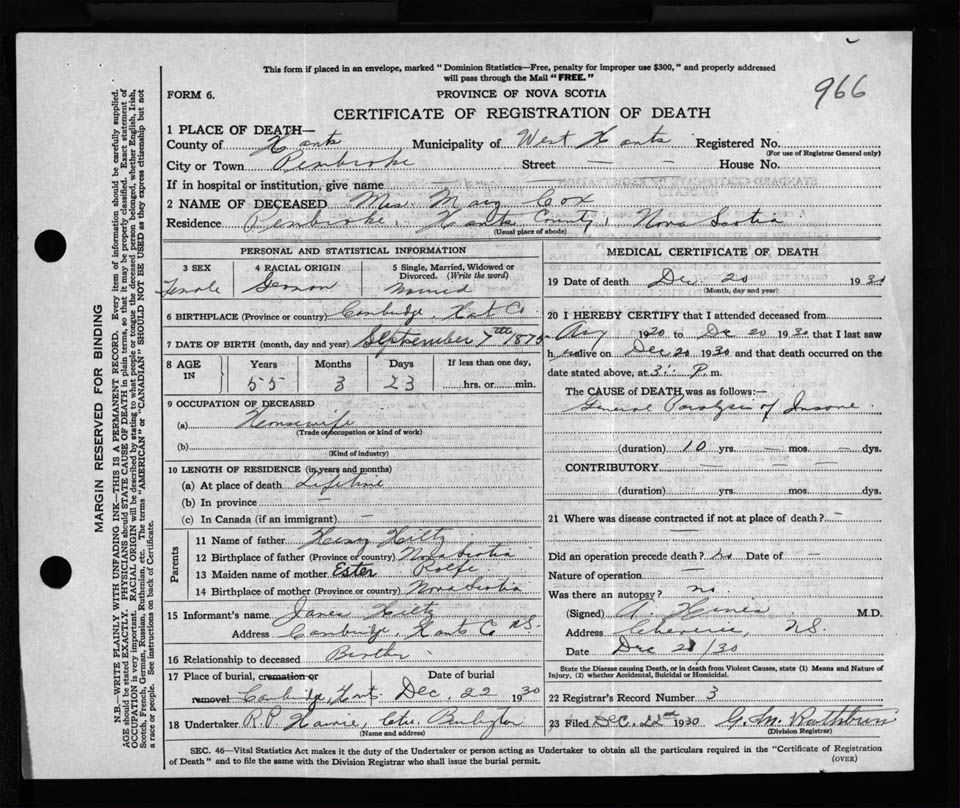 This form if placed in an envelope, marked "Dominion Statistics—Free, penalty for improper use $300," and properly addressed
will pass through the Mail "FREE."
966
FORM 6.
PROVINCE OF NOVA SCOTIA
CERTIFICATE OF REGISTRATION OF DEATH
1 PLACE OF DEATH—
County of Hants Municipality of West Hants Registered No.
(For use of Registrar General only)
City or Town Pembroke Street — — House No.
If in hospital or institution, give name
2 NAME OF DECEASED Mrs. Mary Cox
Residence Pembroke, Hants County, Nova Scotia
(Usual place of abode)
PERSONAL AND STATISTICAL INFORMATION
3 SEX
Female
4 RACIAL ORIGIN
German
5 Single, Married, Widowed or
Divorced. (Write the word)
Married
6 BIRTHPLACE (Province or country) Cambridge, Hants Co.
7 DATE OF BIRTH (month, day and year) September 7th 1875
8 AGE
IN
Years Months Days If less than one day,
55 3 23 hrs. or min.
9 OCCUPATION OF DECEASED
(a) Housewife
(Trade or occupation or kind of work)
(b)
(Kind of industry)
10 LENGTH OF RESIDENCE (in years and months)
(a) At place of death Lifetime
(b) In province —
(c) In Canada (if an immigrant) —
Parents
11 Name of father Hiltz
12 Birthplace of father (Province or country) Nova Scotia
13 Maiden name of mother Ester Rolfe
14 Birthplace of mother (Province or country) Nova Scotia
15 Informant's name James Hiltz
Address Cambridge, Hants Co N.S.
16 Relationship to deceased Brother
17 Place of burial, cremation or Date of burial
removal Cambridge, Hants Dec. 22 1930
18 Undertaker R.P. Burlington
(Name and address)
MEDICAL CERTIFICATE OF DEATH
19 Date of death Dec. 20 1930
(Month, day and year)
20 I HEREBY CERTIFY that I attended deceased from
Aug 1920 to Dec 20 1930 that I last saw
her alive on Dec 20 1930 and that death occurred on the
date stated above, at 3 P. m.
The CAUSE of DEATH was as follows:—
General Paralysis of Insane.
(duration) 10 yrs. — mos. — dys.
CONTRIBUTORY — — —
(duration) yrs. mos. dys.
21 Where was disease contracted if not at place of death? —
Did an operation precede death? no Date of —
Nature of operation —
Was there an autopsy? no.
(Signed) A. M.D.
Address N.S.
Date Dec 21/30
State the Disease causing Death, or in death from Violent Causes, state (1) Means and Nature of
Injury, (2) whether Accidental, Suicidal or Homicidal.
22 Registrar's Record Number 3
23 Filed Dec. 22nd 1930 G. M. Rathbun
(Division Registrar)
SEC. 46—Vital Statistics Act makes it the duty of the Undertaker or person acting as Undertaker to obtain all the particulars required in the "Certificate of Registration
of Death" and to file the same with the Division Registrar who shall issue the burial permit.
(OVER)
MARGIN RESERVED FOR BINDING
N.B.—WRITE PLAINLY WITH UNFADING INK—THIS IS A PERMANENT RECORD. Every item of information should be carefully supplied.
AGE should be stated EXACTLY. PHYSICIANS should STATE CAUSE OF DEATH in plain terms, so that it may be properly classified. Exact statement of
OCCUPATION is very important. RACIAL ORIGIN will be described by stating to what people or tongue the deceased person belonged, whether English, Irish,
Scotch, French, German, Russian, Ruthenian, etc. The terms "AMERICAN" or "CANADIAN" SHOULD NOT BE USED as they express citizenship but not
a race or people. See instructions on back of Certificate.